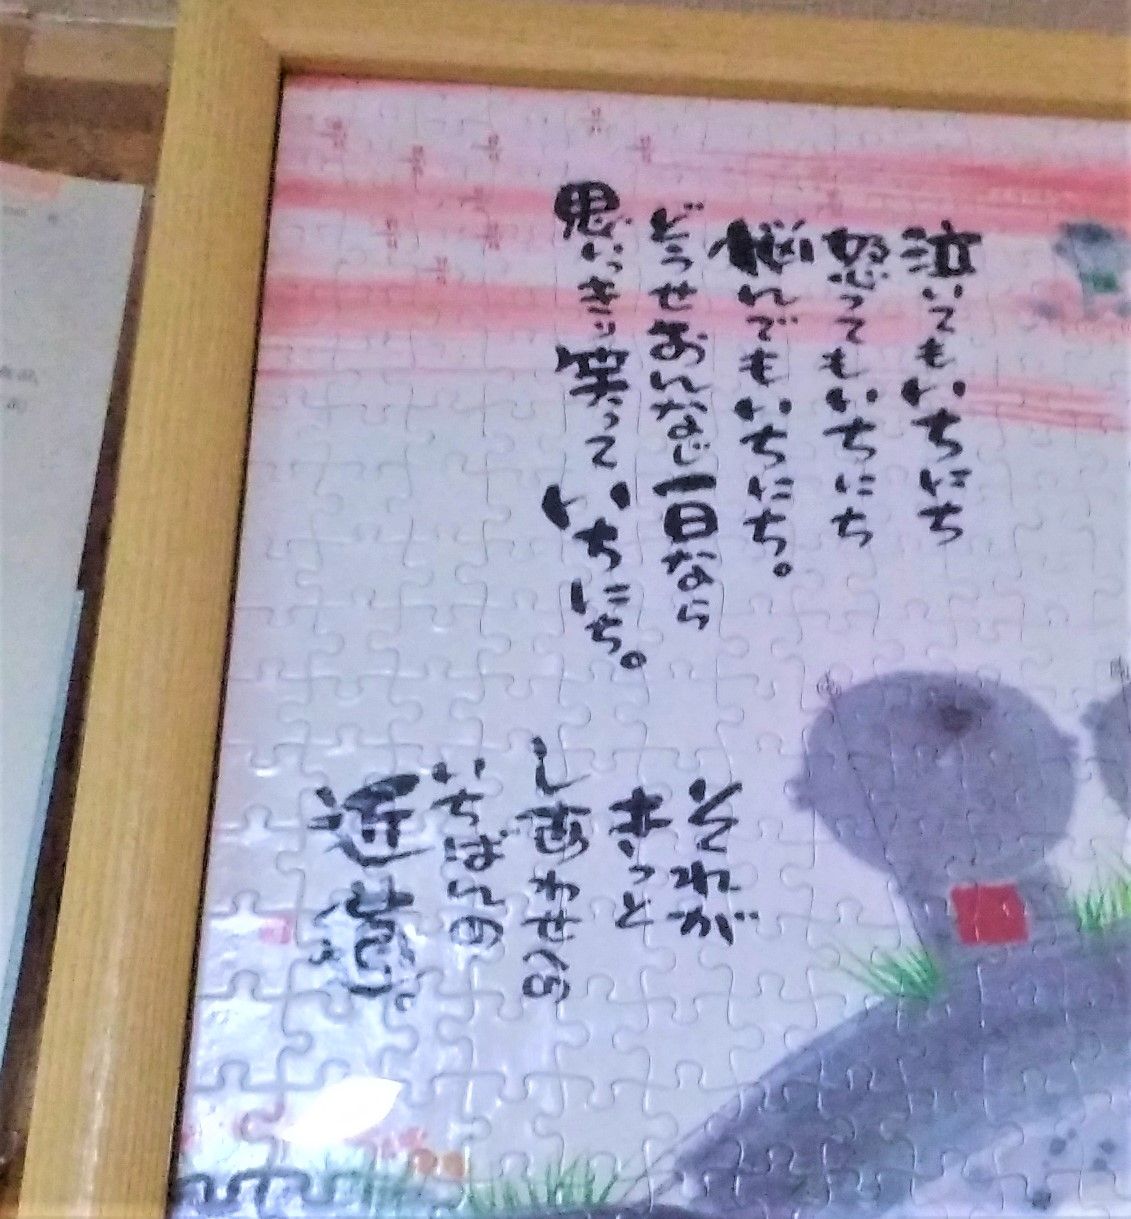 泣いてもいちにち
怒ってもいちにち
悩んでもいちにち。
どうせおんなじ一日なら
思いっきり笑っていちにち。
それが
きっと
しあわせへの
いちばんの
近道